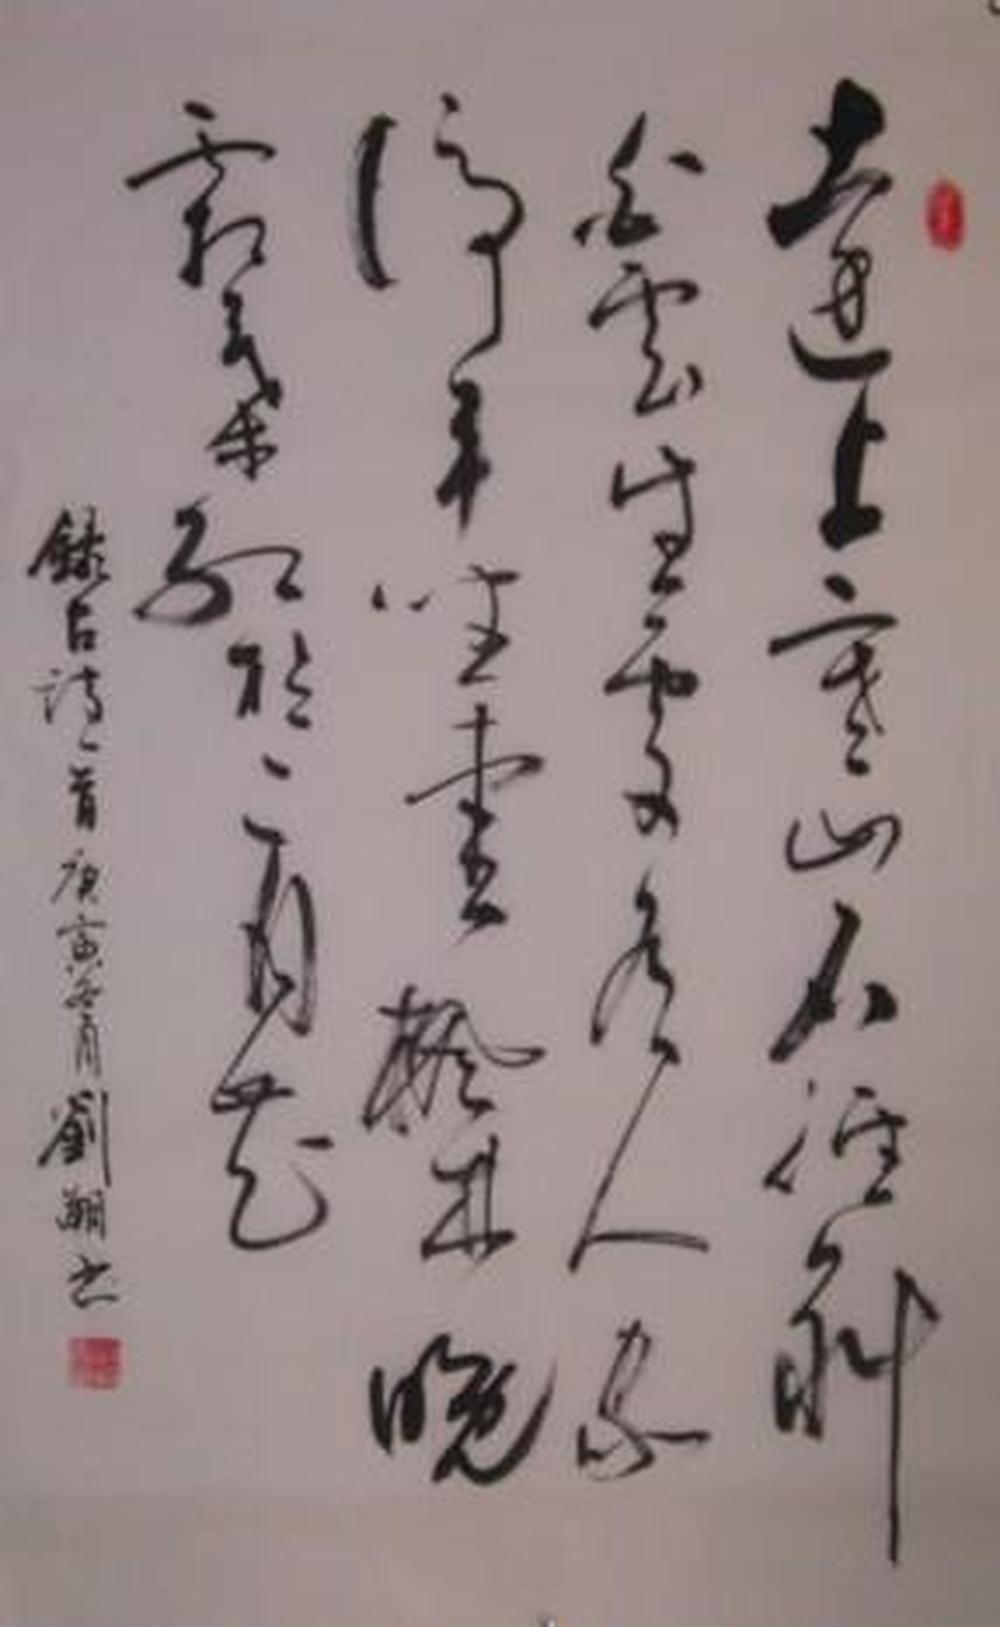 遠上寒山石徑斜
白雲生處有人家
停車坐愛楓林晚
霜葉紅於二月花
錄古詩一首 庚寅冬月 劉 书